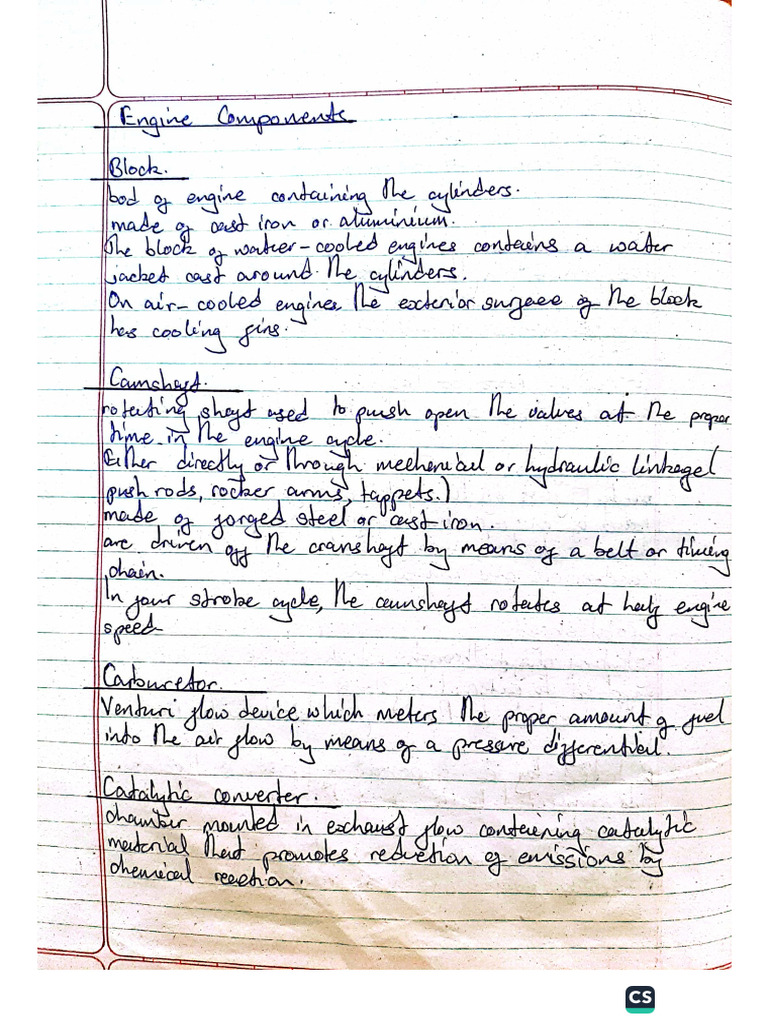 Engine Components
Block.
bod of engine containing the cylinders.
made of cast iron or aluminium.
The block of water-cooled engines contains a water
jacket cast around the cylinders.
On air-cooled engines the exterior surface of the block
has cooling fins.
Camshaft.
rotating shaft used to push open the valves at the proper
time in the engine cycle.
Either directly or through mechanical or hydraulic linkage(
push rods, rocker arms, tappets.)
made of forged steel or cast iron.
are driven off the cranshaft by means of a belt or timing
chain.
In four stroke cycle, the camshaft rotates at half engine
speed
Carburetor.
Venturi flow device which meters the proper amount of fuel
into the air flow by means of a pressure differential.
Catalytic converter.
chamber mounted in exhaust flow containing catalytic
material that promotes reduction of emissions by
chemical reaction.
CS